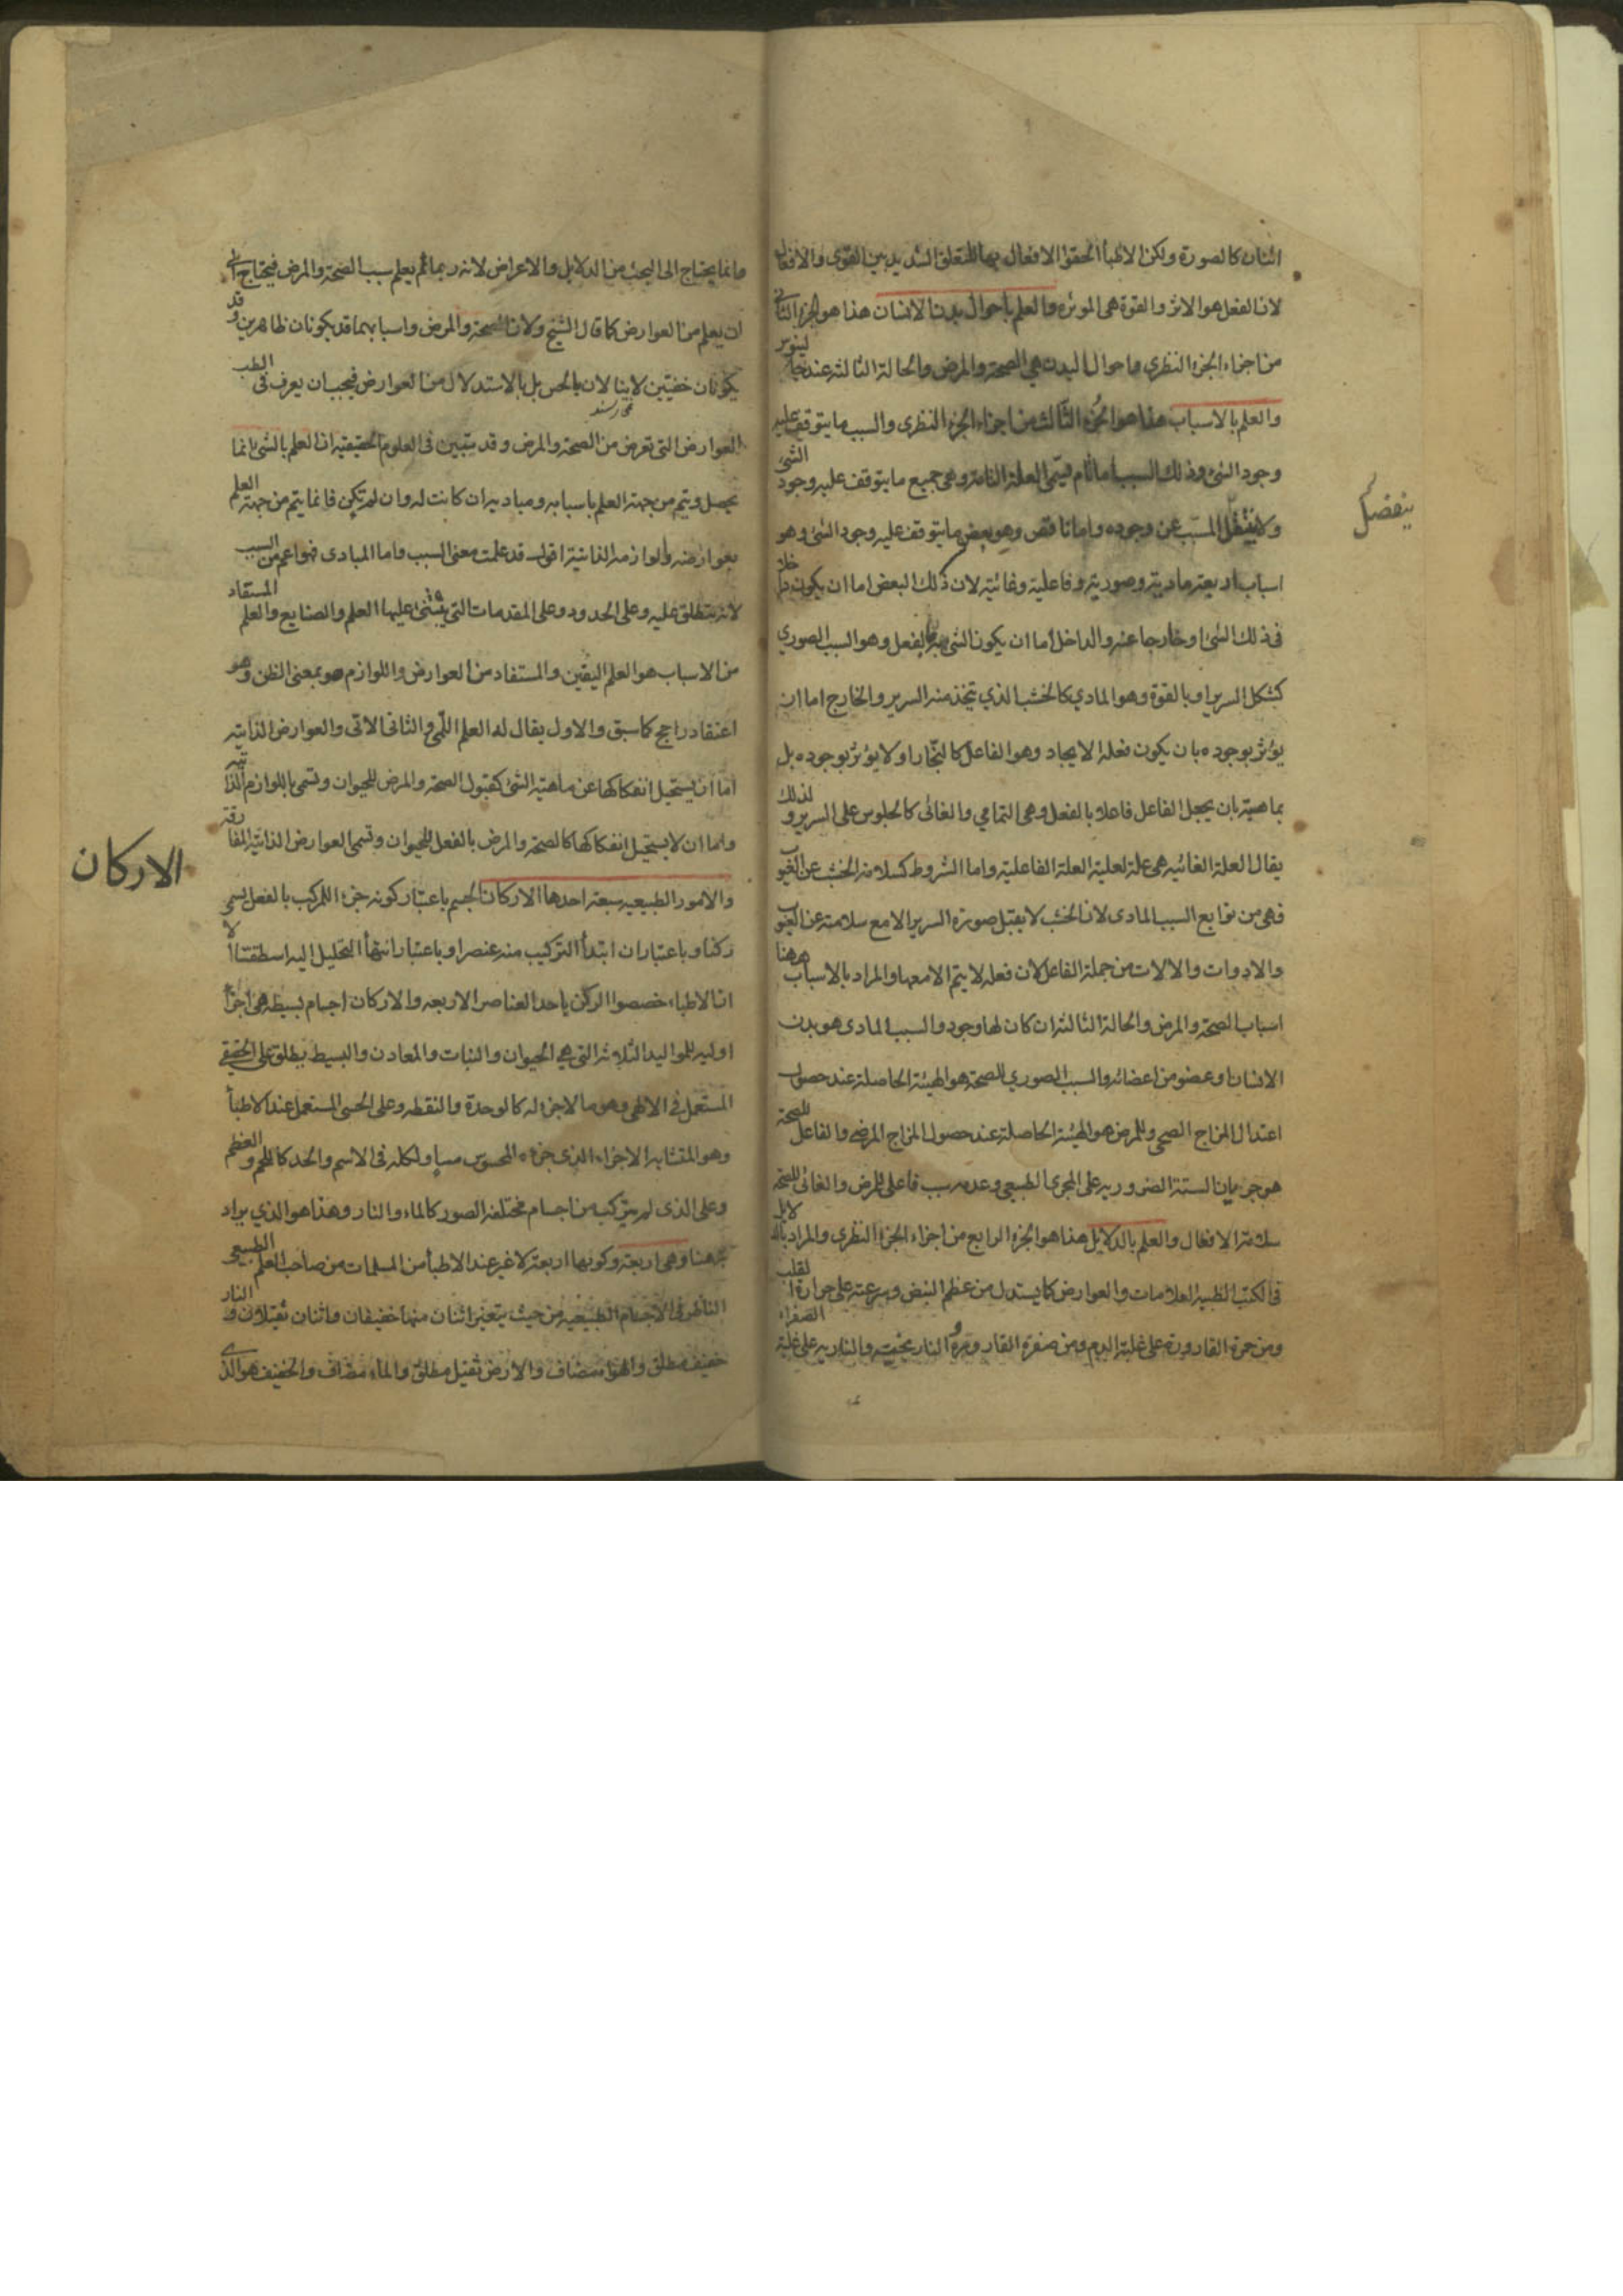 الثان كالصورة ولكن الاطبأ الحقوا الافعال بها للتعلق الشديد بين القوى والافعال
لان الفعل هو الاثر والقوة هى الموثره والعلم باحوال بدن الانسان هذا هو الجزء الثانى
من اجزاء الجزء النظري واحوال البدن هي الصحة والمرض والحالة الثالثه عند جالينوس
والعلم بالاسباب هذا هو الجزء الثالث من اجزاء الجزء النظرى والسبب ما يتوقف عليه
وجود الشئ وذلك السبب اما تام فيسمى العلة التامة وهى جميع ما يتوقف عليه وجود الشئ
ينفصل
ولا المسبب عن وجوده واما ناقص وهو بعض ما يتوقف عليه وجود الشئ وهو
اسباب اربعة مادية وصورية وفاعلية وغائية لان ذلك البعض اما ان يكون داخلا
فى ذلك الشئ او خارجا عنه والداخل اما ان يكون الشئ به بالفعل وهو السبب الصوري
كشكل السرير او بالقوة وهو المادي كالخشب الذي يتخذ منه السرير والخارج اما ان
يؤثر بوجوده بان يكون فعله الايجاد وهو الفاعل كالنجّار او لا يؤثر بوجوده بل
بماهيته بان يجعل الفاعل فاعلا بالفعل وهى التمامي والغائى كالجلوس على السرير ولذلك
يقال العلة الغائيه هى علة لعلية العلة الفاعلية واما الشروط كسلامة الخشب عن العيوب
فهى من توابع السبب المادى لان الخشب لا يقبل صورة السرير الا مع سلامته عن العيوب
والادوات والالات من جملة الفاعل لان فعله لا يتم الا معها والمراد بالاسباب ههنا
اسباب الصحة والمرض والحالة الثالثة ان كان لها وجود والسبب المادى هو بدن
الانسان او عضو من اعضائه والسبب الصوري للصحة هو الهيئة الحاصلة عند حصول
اعتدال المزاج الصحى وللمرض هو الهيئة الحاصلة عند حصول المزاج المرضى والفاعل للصحة
هو جريان الستة الضروريه على المجرى الطبيعى وعدمه سبب فاعلى للمرض والغائى للصحة
سلامة الافعال والعلم بالدلايل هذا هو الجزء الرابع من اجزاء الجزء النظرى والمراد بالدلايل
فى الكتب الطبية العلامات والعوارض كما يستدل من عظم النبض وسرعته على حرارة القلب
ومن حمرة القارورة على غلبة الدم ومن صفرة القارورة والنارنجيه والناريه على غلبة الصفراء
وانما يحتاج الى البحث من الدلايل والاعراض لانه ربما لم يعلم سبب الصحة والمرض فيحتاج الى
ان يعلم من العوارض كما قال الشيخ ولان الصحة والمرض واسبابهما قد يكونان ظاهرين وقد
يكونان خفيين لا ينالان بالحس بل بالاستدلال من العوارض فيجب ان يعرف فى الطب
العوارض التى تعرض من الصحة والمرض وقد تبين فى العلوم الحقيقيه ان العلم بالشئ انما
يحصل ويتم من جهة العلم باسبابه ومباديه ان كانت له وان لم تكن فانما يتم من جهة العلم
بعوارضه ولوازمه الذاتية اقول قد علمت معنى السبب واما المبادى فهو اعم من السبب
لانه يتطلق عليه وعلى الحدود وعلى المقدمات التي يبتنى عليها العلم والصنايع والعلم المستفاد
من الاسباب هو العلم اليقين والمستفاد من العوارض واللوازم هو بمعنى الظن وهو
اعتقاد راجح كما سبق والاول يقال له العلم اللّمى والثانى الانى والعوارض الذاتية
اما ان يستحيل انفكاكها عن ماهية الشئ كقبول الصحة والمرض للحيوان وتسمى باللوازم الذاتيه
واما ان لا يستحيل انفكاكها كالصحة والمرض بالفعل للحيوان وتسمى العوارض الذاتية المفارقة
الاركان
والامور الطبيعيه سبعة احدها الاركان الجسم باعتبار كونه جزء اللمركب بالفعل يسمى
ركنا وباعتبار ان ابتدأ التركيب منه عنصرا وباعتبار انتهأ التحليل اليه اسطقسا الا
ان الاطباء خصصوا الركن باحد العناصر الاربعه والاركان اجسام بسيطة هى اجزأ
اوليه للمواليد الثلاثة التي هي الحيوان والنبات والمعادن والبسيط يطلق على الحقيقى
المستعمل فى الالهى وهو ما لا جزء له كالوحدة والنقطه وعلى الحسى المستعمل عند الاطبأ
وهو المتشابه الاجزاء الذى جزءه المحسوس مساو لكله فى الاسم والحد كاللحم والعظم
وعلى الذى لم يتركب من اجسام مختلفة الصور كالماء والنار وهذا هو الذي يراد
ههنا وهى اربعة وكونها اربعة لا غير عند الاطبأ من المسلمات من صاحب العلم الطبيعى
الناظر فى الاجسام الطبيعيه من حيث يتغير اثنان منها خفيفان واثنان ثقيلان والنار
خفيف مطلق والهوا مضاف والارض ثقيل مطلق والماء مضاف والخفيف هو الذى